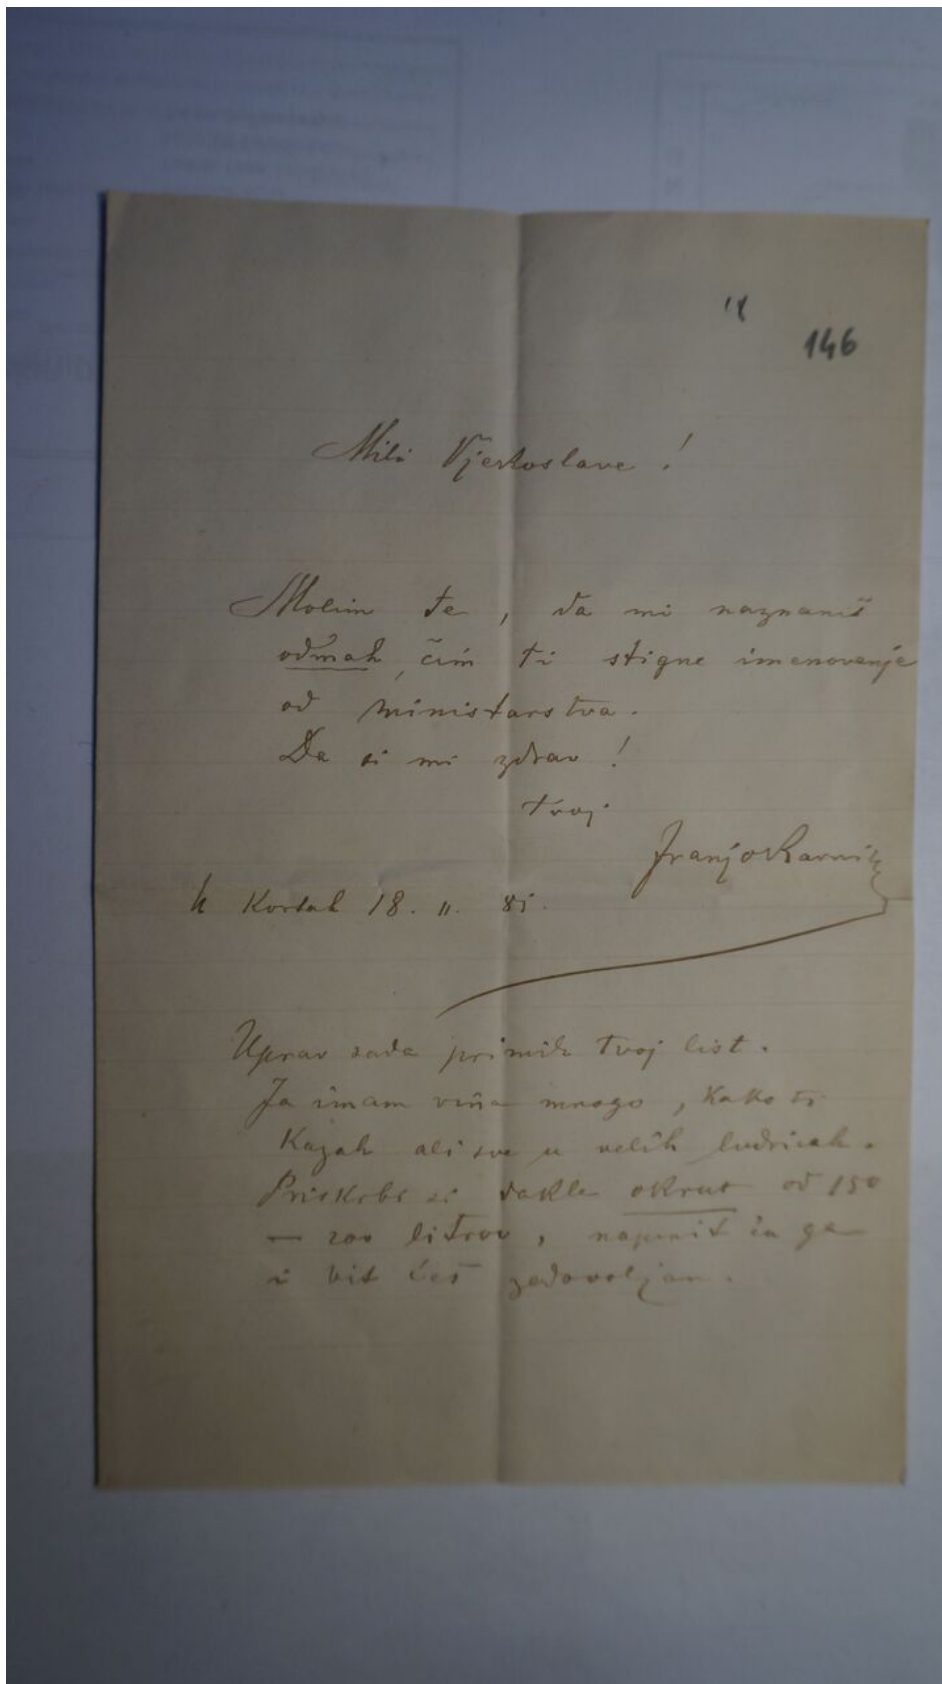 146
Mili Vjekoslave!
Molim te, da mi naznaniš
odmah, čim ti stigne imenovanje
od ministarstva.
Da si mi zdrav!
tvoj
Franjo
18. 11. 81.
Uprav sada primih tvoj list.
Ja imam vina mnogo, kako ti
kazah ali sve u velih
Priskrbi si dakle okrut od 150
— 200 litrov, napunit ća ga
i bit ćeš zadovoljan.